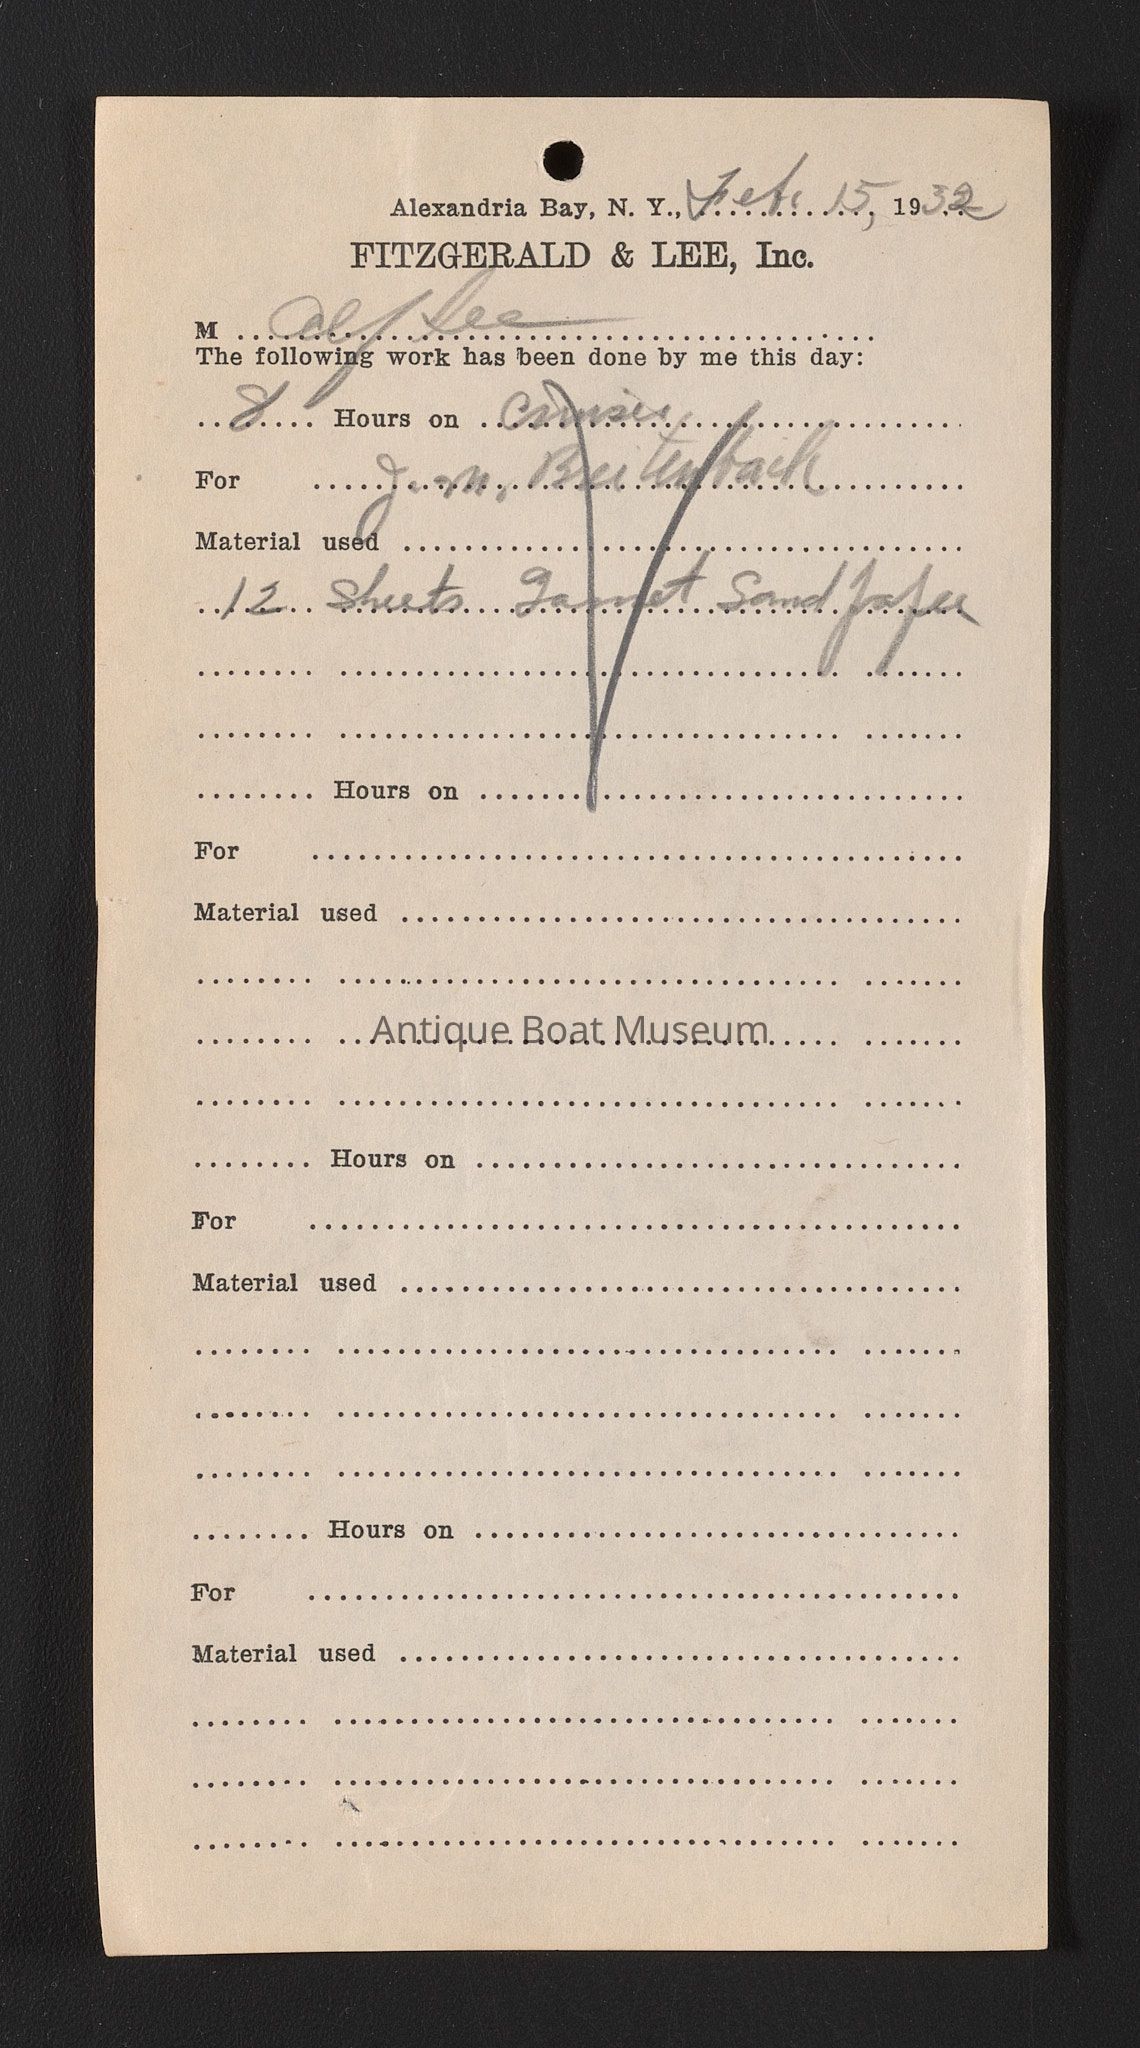 Alexandria Bay, N. Y., Feb. 15, 1932
FITZGERALD & LEE, Inc.
M Alf Lee
The following work has been done by me this day:
8 Hours on Cruiser
For J. M. Breitenbach
Material used
12 Sheets Garnet Sand paper
Hours on
For
Material used
Antique Boat Museum
Hours on
For
Material used
Hours on
For
Material used